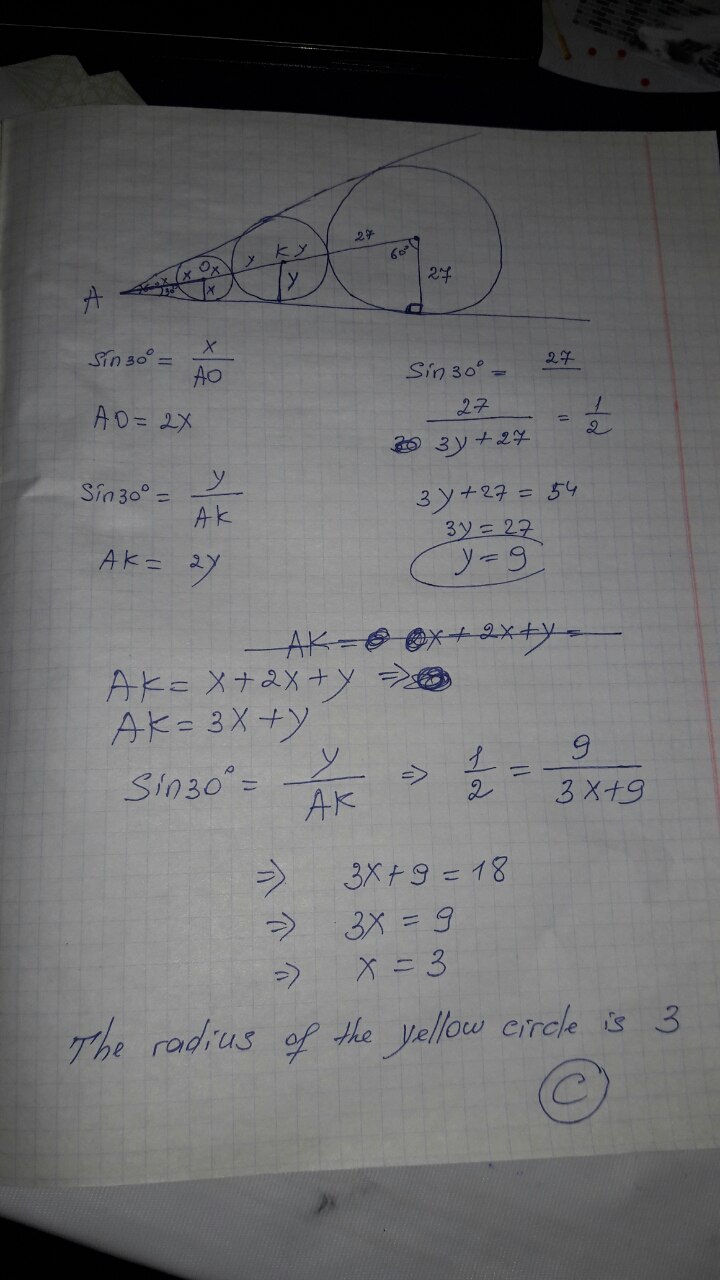 A
x
x
O
x
30°
x
y
K
y
y
27
60°
27
Sin30° = x/AO
AO = 2x
Sin30° = y/AK
AK = 2y
Sin30° = 27
27/(3y+27) = 1/2
3y+27 = 54
3y = 27
y = 9
AK = x + 2x + y =
AK = x + 2x + y ⇒
AK = 3x + y
Sin30° = y/AK ⇒ 1/2 = 9/(3x+9)
⇒ 3x+9 = 18
⇒ 3x = 9
⇒ x = 3
The radius of the yellow circle is 3
C